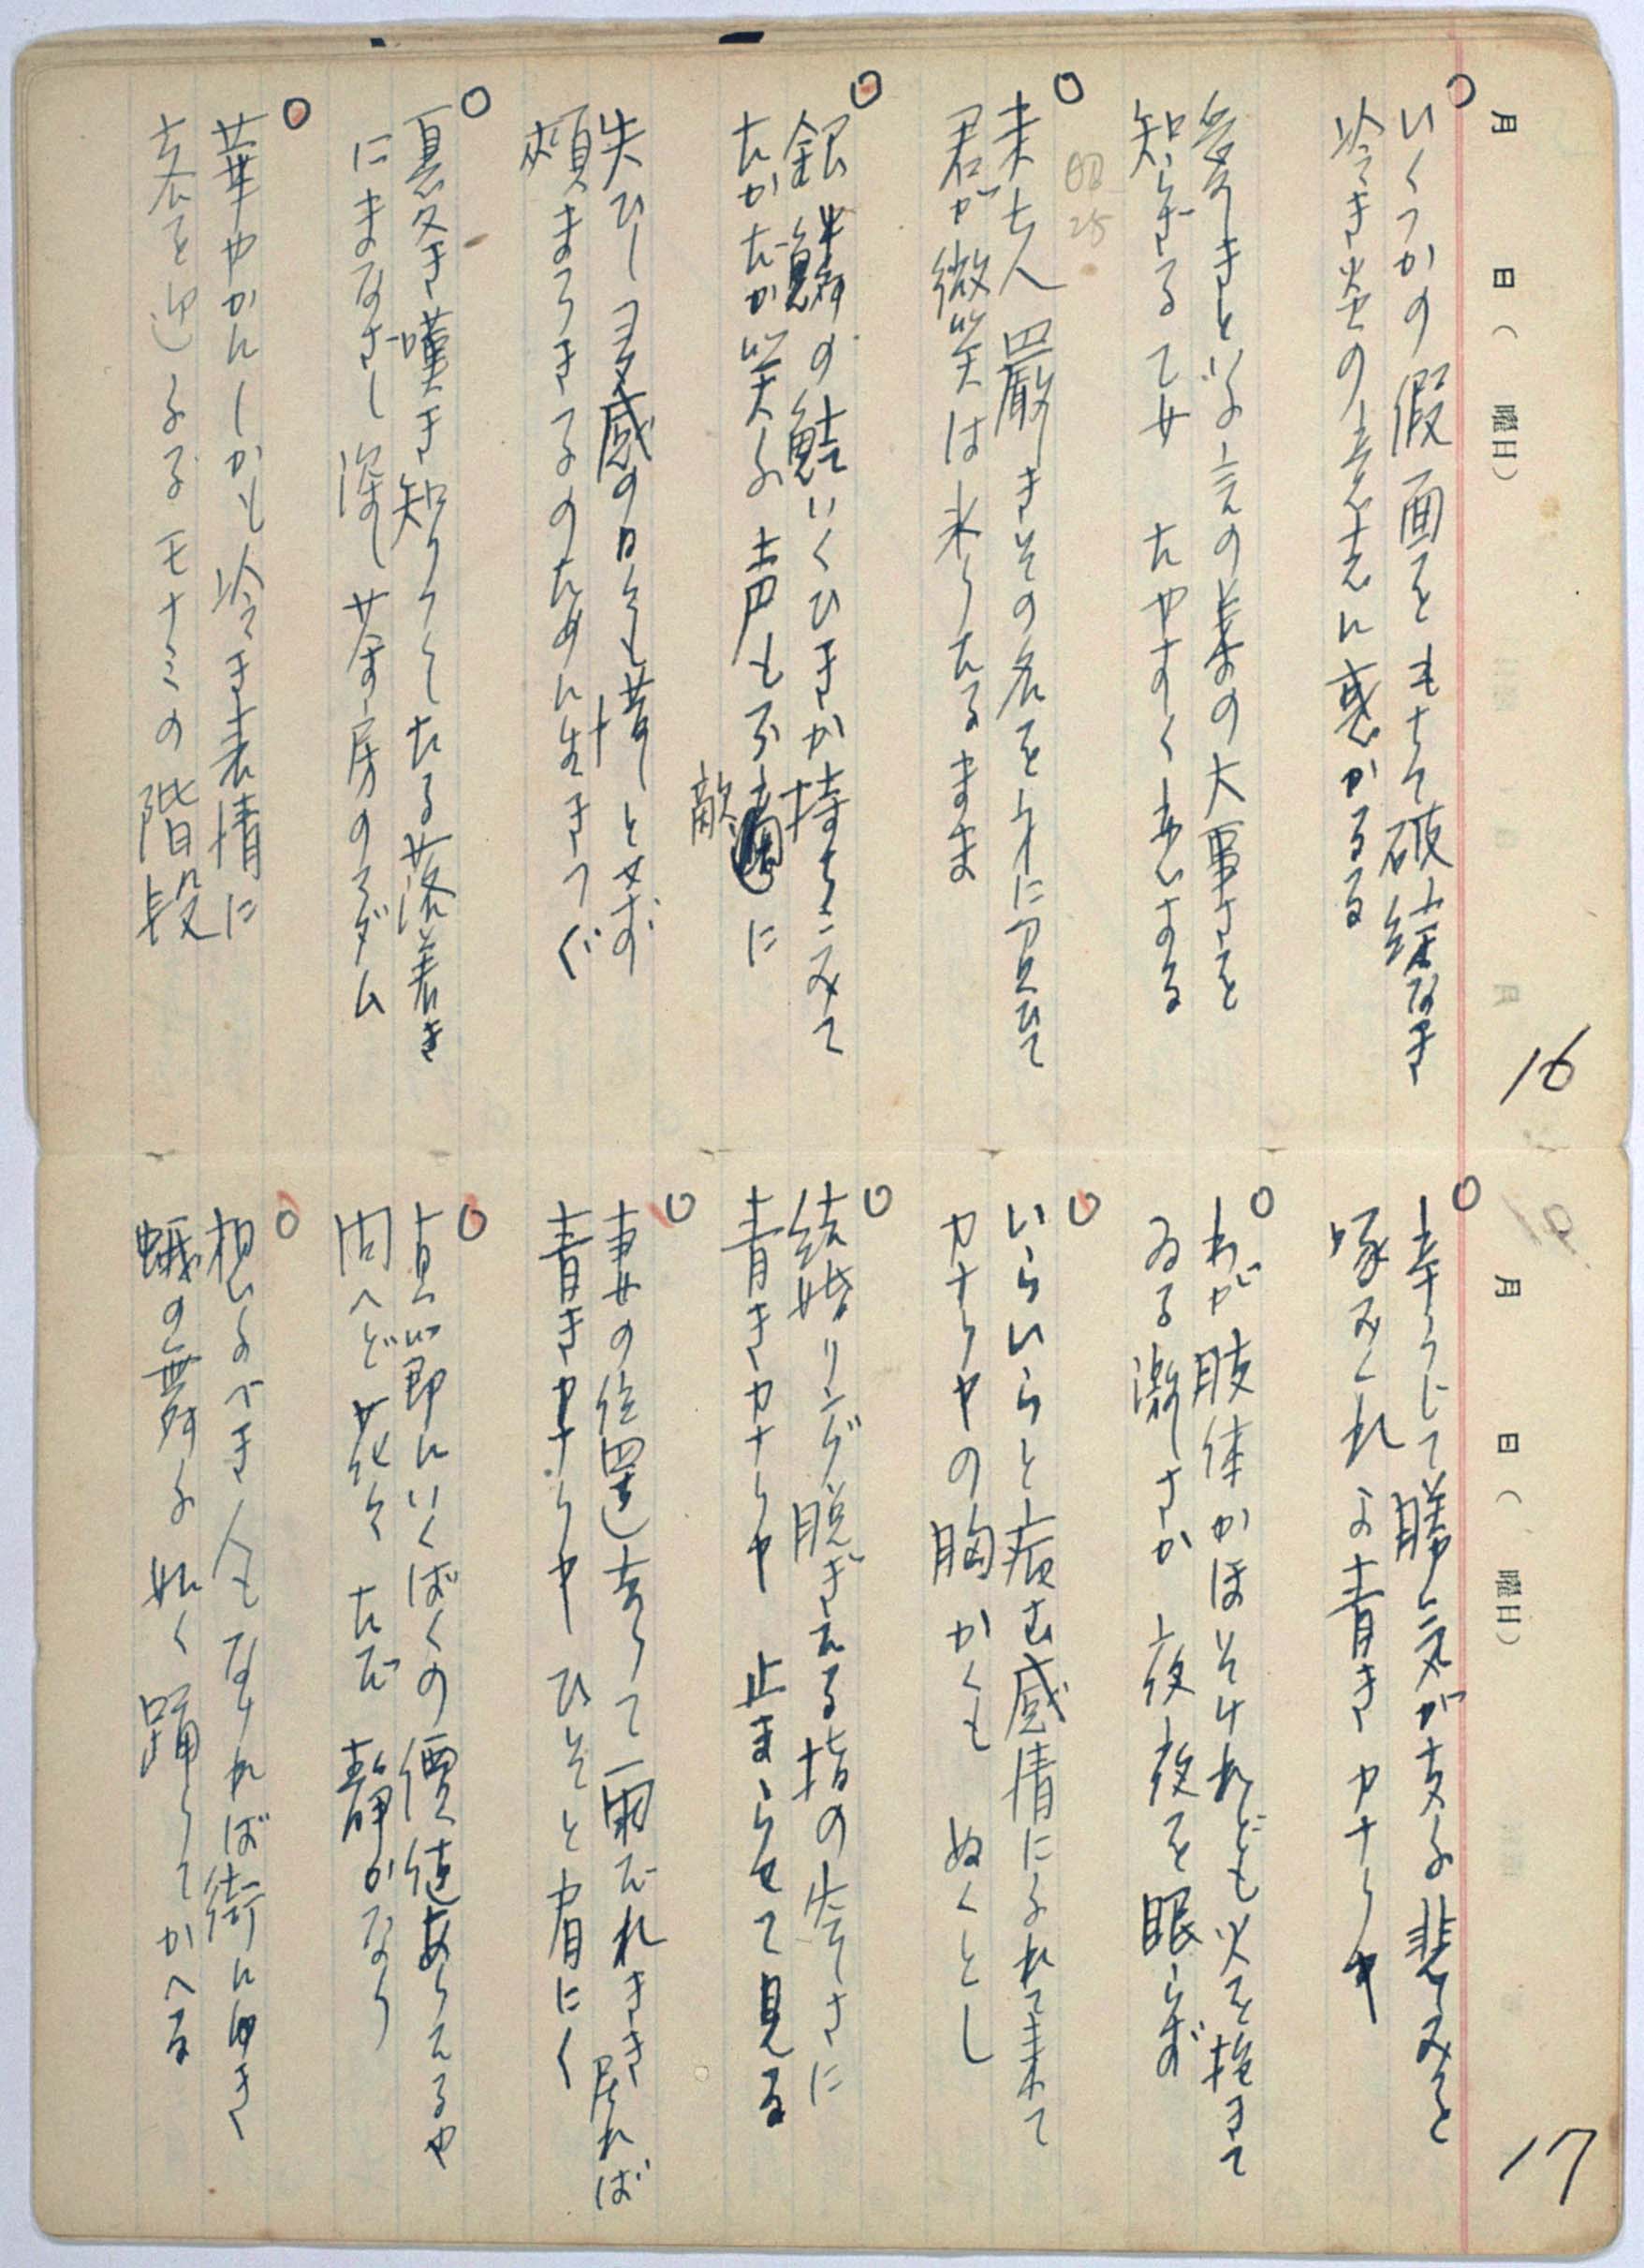 月 日( 曜日)
16
○いくつかの假面をもちて破綻なき
冷き焰の意志に惹かるる
愛しきといふ言の葉の大事さを
知らざる乙女 たやすく恋する
○未亡人 厳しきその名を身に負ひて
君が微笑は氷りたるまま
昭25
○銀鱗の鮭いくひきか持ちこみて
たかだか笑ふ声も不敵に
失ひし多感の日をも惜しとせず
頬まろき子のために生きつぐ
○夏冬き嘆き知りつくしたる落着き
にまなざし深し 茶房のマダム
○華やかにしかも冷き表情に
吾を迎ふるモナミの階段
月 日( 曜日)
17
○辛うじて勝気が支ふ悲しみを
啄みくれよ青きカナリヤ
○わが肢体かほそけれども火を抱きて
ゐる激しさか 夜夜を眠らず
○いらいらと病む感情にふれて来て
カナリヤの胸かくも ぬくとし
○結婚リング脱ぎたる指の寂しさに
青きカナリヤ 止まらせて見る
○妻の位置去りて雨だれをきき居れば
青きカナリヤ ひそと肩にく
○貞節にいくばくの價値あらんや
問へど花々 ただ静かなり
○想ふべき人もなければ街にゆき
蛾の舞ふ如く踊りてかへる